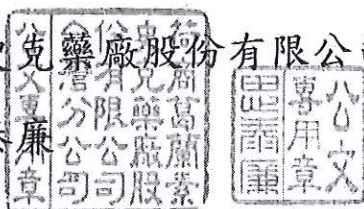 克藥廠股份有限公
廉
荷商葛蘭素
史克藥廠股
份有限公司
台灣分公司
公文專用章
公文
專用章
泰廉